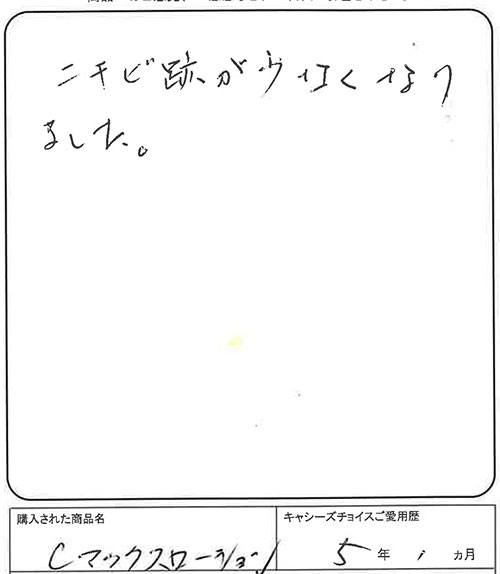 ニキビ跡が少なくなり
ました。
購入された商品名
キャシーズチョイスご愛用歴
Cマックスローション
5 年 ヵ月